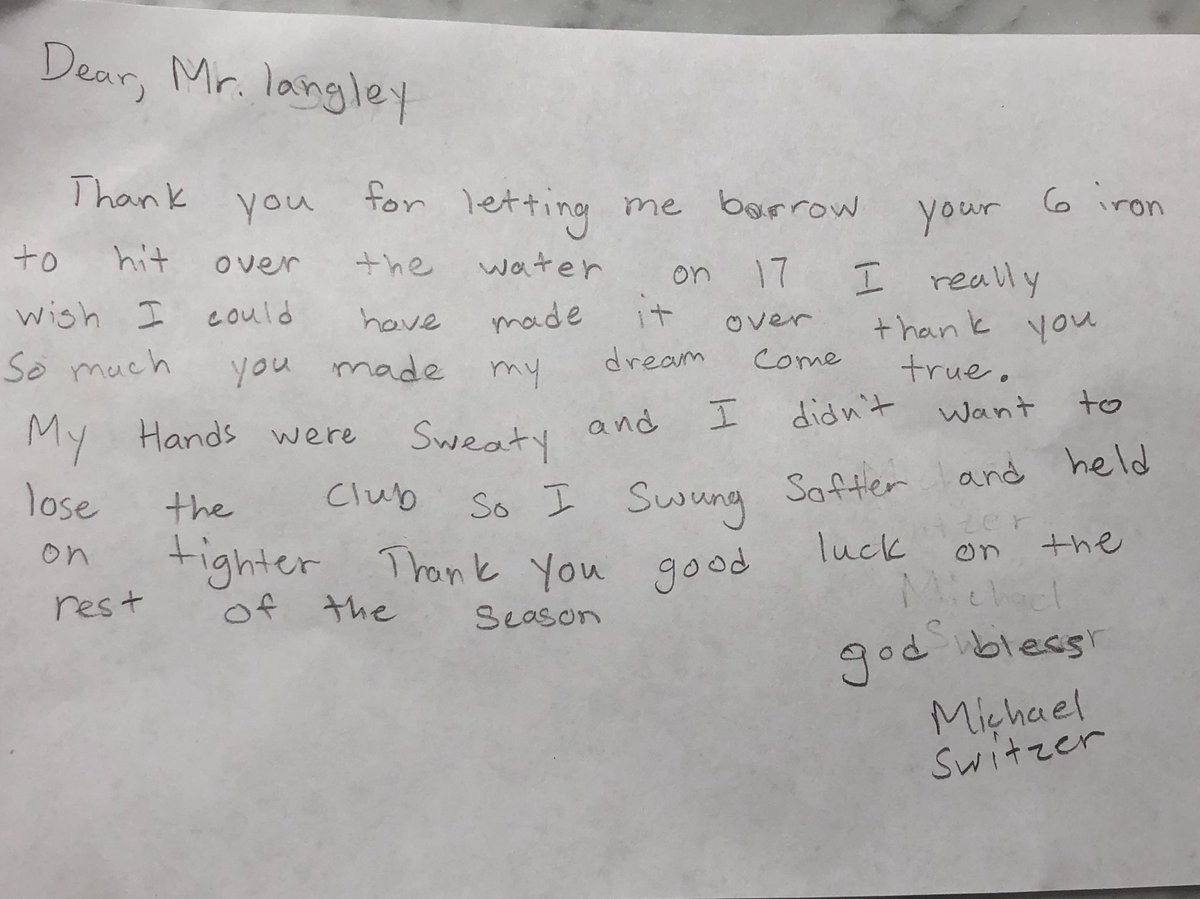 Dear, Mr. langley
Thank you for letting me barrow your 6 iron
to hit over the water on 17 I really
wish I could have made it over thank you
So much you made my dream come true.
My Hands were Sweaty and I didn't want to
lose the Club So I Swung Softer and held
on tighter Thank you good luck on the
rest of the season
god bless
Michael
Switzer